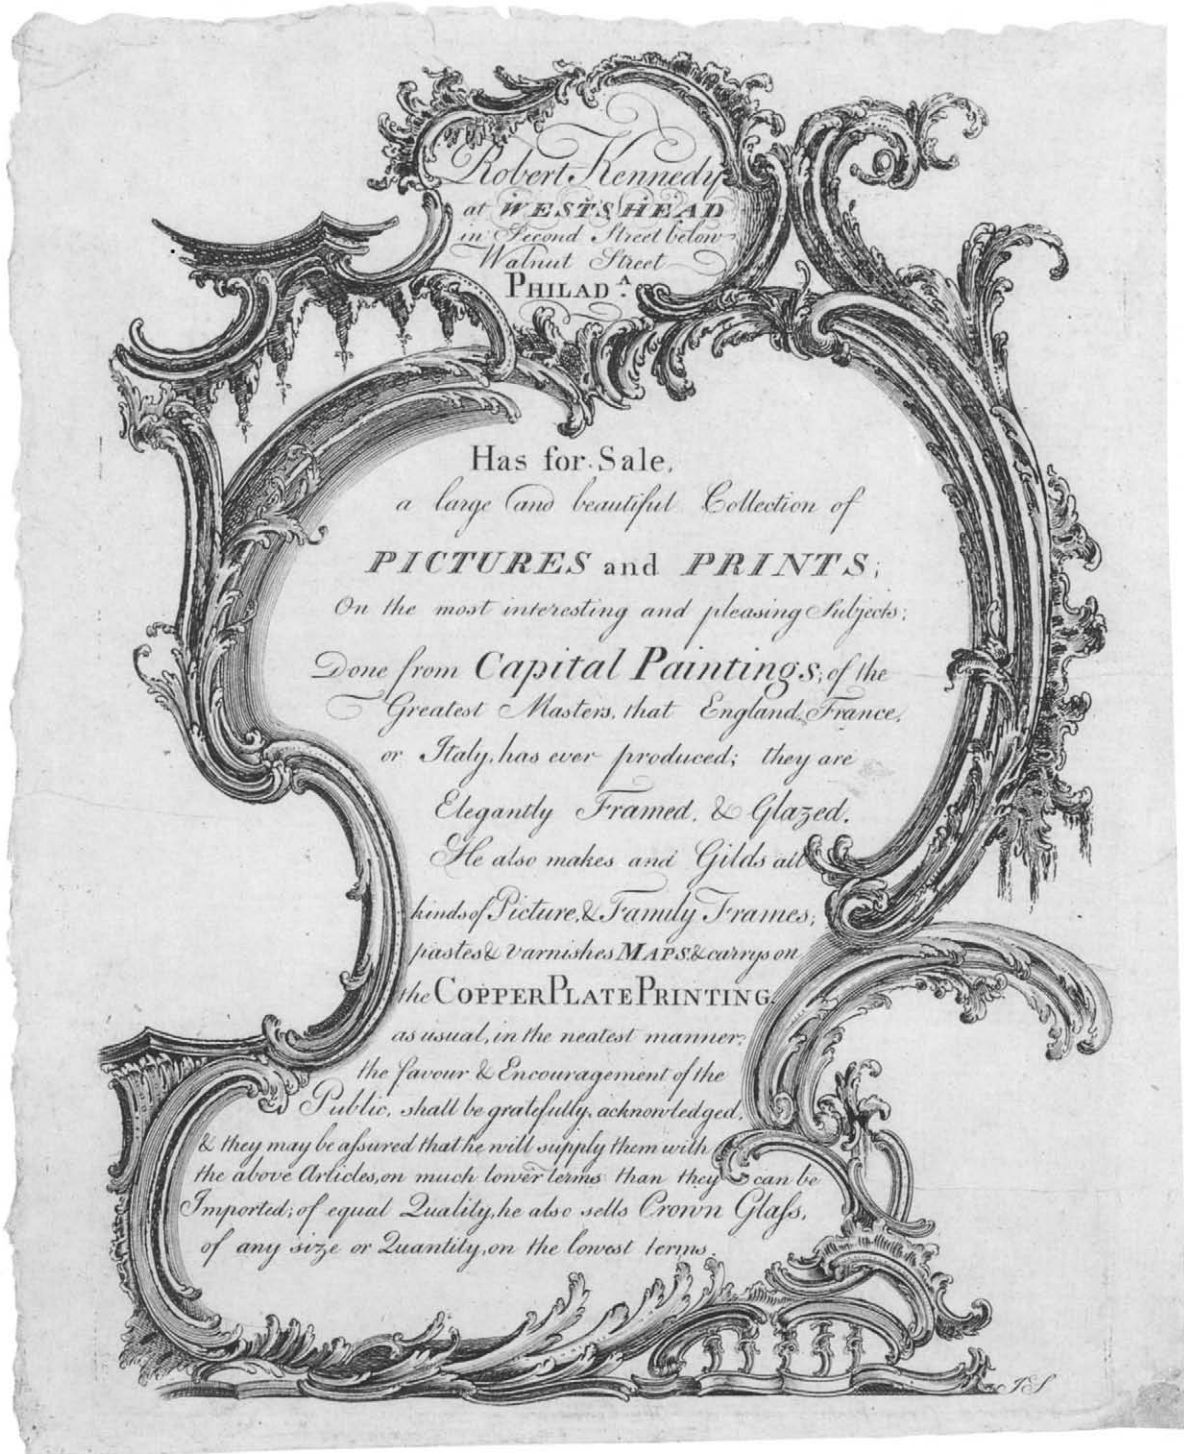 Robert Kennedy
at WESTS HEAD
in Second Street below
Walnut Street
PHILAD^A.
Has for Sale,
a large and beautiful Collection of
PICTURES and PRINTS;
On the most interesting and pleasing Subjects;
Done from Capital Paintings, of the
Greatest Masters, that England, France,
or Italy, has ever produced; they are
Elegantly Framed, & Glazed.
He also makes and Gilds all
kinds of Picture, & Family Frames;
pastes & varnishes MAPS, & carrys on
the COPPER PLATE PRINTING,
as usual, in the neatest manner;
the favour & Encouragement of the
Public, shall be gratefully, acknowledged,
& they may be aſsured that he will supply them with
the above Articles, on much lower terms than they can be
Imported; of equal Quality, he also sells Crown Glaſs,
of any size or Quantity, on the lowest terms.
JS